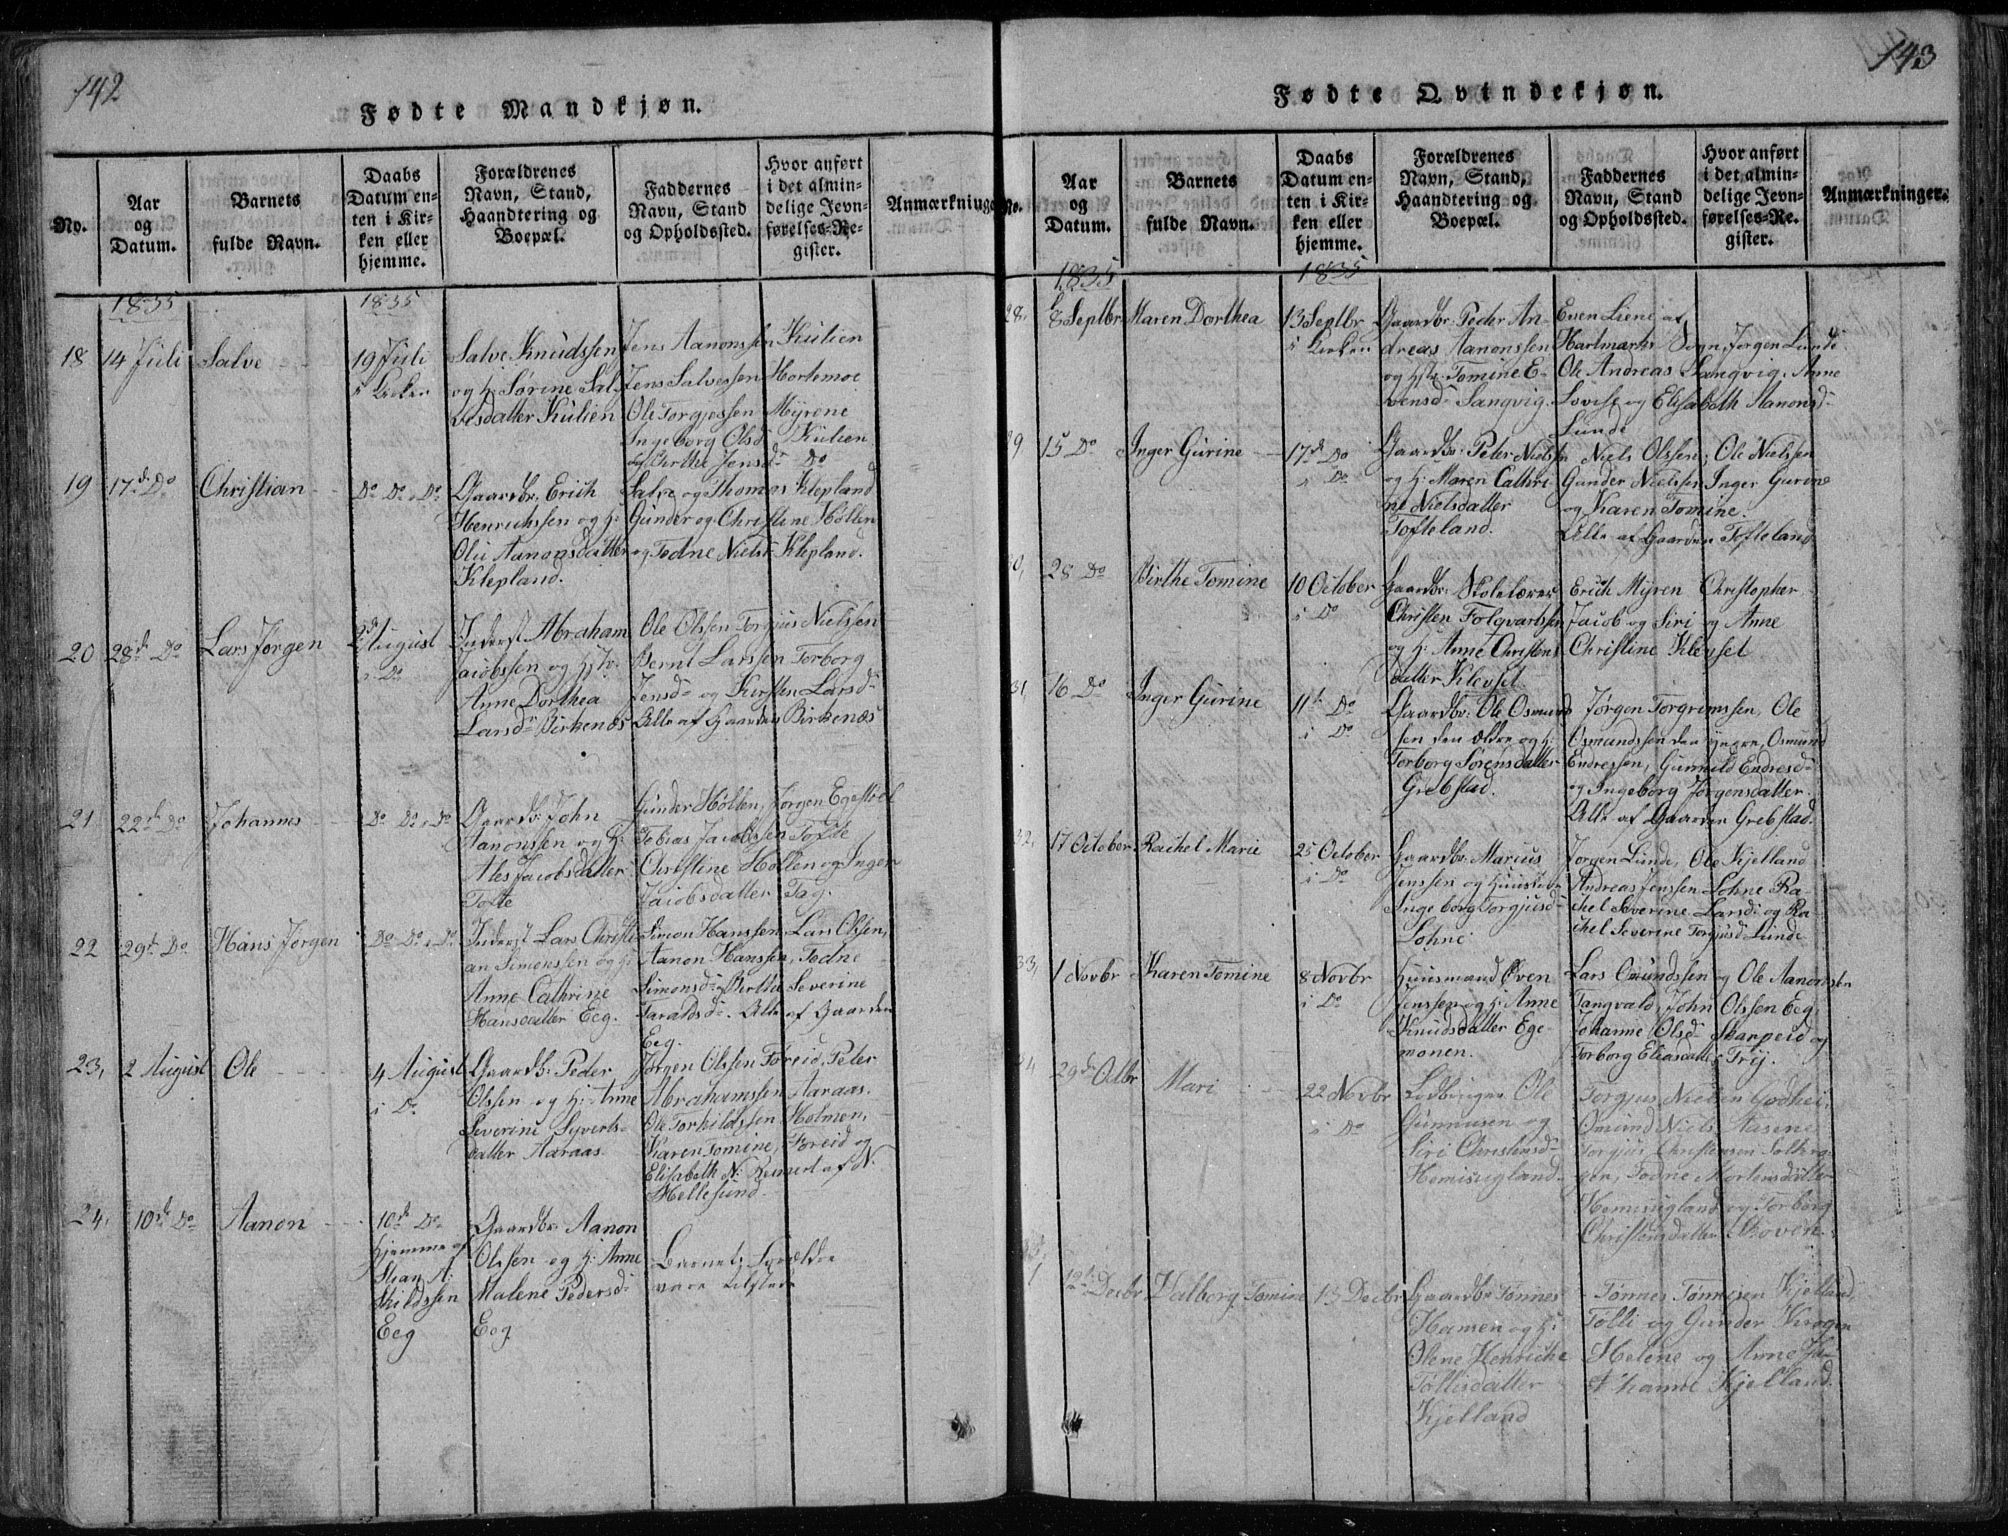 142
Fødte Mandkjøn.
No.
Aar
og
Datum.
Barnets
fulde Navn.
Daabs
Datum en-
ten i Kir-
ken eller
hjemme.
Forældrenes
Navn, Stand,
Haandtering og
Boepæl.
Faddernes
Navn, Stand
og Opholdssted.
Hvor anført
i det almin-
delige Jevn-
førelses-Re-
gister.
Anmærkninge
1835
1835
18
14 Juli
Salve
19 Juli
i Kirken
Salve Knudssen
og h. Sørine Sal-
vesdatter Kulien
Jens Aanonssen Kulien
Jens Salvessen Hortemoe
Ole Torgjessen Myrene
Ingeborg Olsd Kulien
Birthe Jensd. Do
19
17d. Do
Christian
Do Do i Do
Gaardbr. Erich
Henrichssen og h.
Olii Aanonsdatter
Klepland.
Salve og Thomas Klepland
Gunder og Christine Høllen
og Todne Niels Klepland.
20
28d. Do
Lars Jørgen
2d August
i Do
Inderst Abraham
Jacobssen og Hstr.
Anne Dorthea
Larsd. Birkenæs
Ole Olssen Torgius Nielssen
Bernt Larssen Torborg
Jensd. og Kirsten Larsd.
Alle af Gaarden Birkenæs
21
22d. Do
Johannes
Do Do i Do
Gaardb. John
Aanonssen og h.
Ales Jacobsdatter
Tofte
Gunder Høllen, Jørgen Egestøel
Tobias Jacobssen Tofte
Christine Høllen og Inger
Jacobsdatter Tag.
22
29d. Do
Hans Jørgen
Do Do i Do
Inderst Lars Christi-
an Simonssen og h.
Anne Cathrine
Hansdatter Eeg.
Simon Hanssen Lars Olssen,
Aanon Hanssen, Todne
Simonsd. Birthe Severine
Taraldsd. Alle af Gaarden
Eeg.
23,
2 August
Ole
4 August
i Do
Gaardb. Peder
Olssen og h. Anne
Severine Syverts-
datter Aaraas.
Jørgen Olssen Foreid, Peter
Abrahamssen Aaraas.
Ole Torkildssen Holmen,
Karen Tomine, Foreid og
Elisabeth N. Reinert af N.
Hellesund
24,
10d. Do
Aanon
10d. Do
hjemme af
Stian A.
Kildssen
Eeg
Gaardbr. Aanon
Olssen og h. Anne
Malene Pedersd.
Eeg
Barnets Forældre
vare tilstede
143
Fødte Qvindekjøn.
No.
Aar
og
Datum.
Barnets
fulde Navn.
Daabs
Datum en-
ten i Kir-
ken eller
hjemme.
Forældrenes
Navn, Stand,
Haandtering og
Boepæl.
Faddernes
Navn, Stand
og Opholdssted.
Hvor anført
i det almin-
delige Jevn-
førelses-Re-
gister.
Anmærkninger.
1835
1835
28.
8 Septbr
Maren Dorthea
13 Septbr
i Kirken
Gaardbr. Peder An-
dreas Aanonssen
og hstr. Tomine E-
vensd. Sangvig.
Even Liene af
Hartmarks Sogn, Jørgen Lunde
Ole Andreas Langvig. Anne
Lovise og Elisabeth Aanonsd.
Lunde
29
15 Do
Inger Gurine
17d. Do
i Do
Gaardbr. Peter Nielsen
og h. Maren Cathri-
ne Nielsdatter
Tofteland.
Niels Olssen, Ole Nielssen
Gunder Nielssen Inger Gurine
og Karen Tomine.
Alle af Gaarden Tofteland
30,
28 Do
Birthe Tomine
10 October
i Do
Gaardbr. Skolelærer
Christen Folqvartssen
og h. Anne Christens-
datter Klevset
Erich Myren Christopher
Jacob og Siri og Anne
Christine Klevset
31
16 Do
Inger Gurine
11t. Do
i Do
Gaardbr. Ole Osmund-
sen den ældre og h.
Torborg Sørensdatter
Grebstad.
Jørgen Torgrimssen, Ole
Osmundssen den yngre, Osmund
Endressen, Gunnild Endresd.
og Ingeborg Jørgensdatter.
Alle af Gaarden Grebstad.
32,
17 October
Rachel Marie
25 October
i Do
Gaardbr. Marius
Jenssen og Huustrue
Ingeborg Torgiusd.
Lohne
Jørgen Lunde, Ole Kjelland
Andreas Jenssen Lohne Ra-
chel Severine Larsd. og Ra-
chel Severine Torgiusd Lunde
33,
1 Novbr
Karen Tomine
8 Novbr
i Do
Huusmand Even
Jenssen og h. Anne
Knudsdatter Ege-
monen.
Lars Omundssen og Ole Aanonssen
Tangvald, John Olssen Eeg,
Johanne Olsd Skarpeid og
Torborg Eliasdatter Try.
34
29d. Octbr
Mari
22 Novbr
i Do
Ole
Gunnusen og
Siri Christensd.
Homisugland.
Torgius Nielsen Godhei,
Omund Niels. Aasene
Torgius Christensen Solber
gen, Todne Mortensdatter
Homisugland og Torborg
Christensdatter Skoven.
12t. Decbr
Valborg Tomine
13 Decbr
Gaardbr Tønnes
Hansen og h.
Olene Henriche
Tøllisdatter
Kjelland
Tønnes Tønnesen Kjelland,
Tølli og Gunder Krogen
Helene og Anne Jo-
hanne Kjelland.